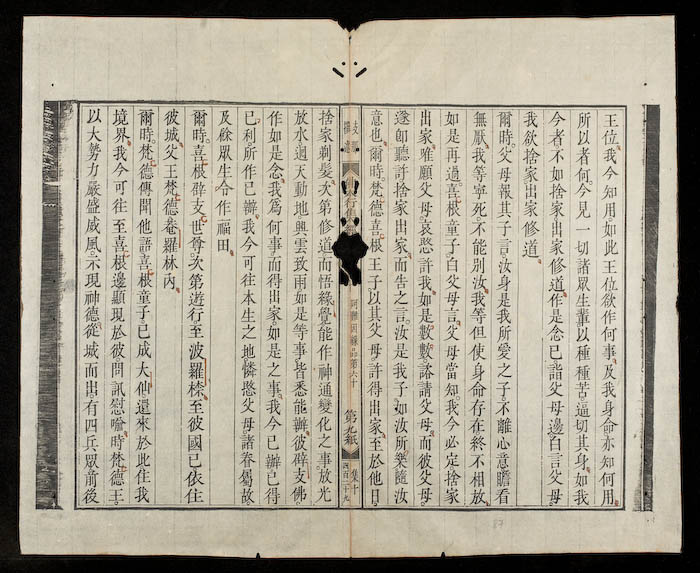 王位我今知用如此王位欲作何事及我身命亦知何用
所以者何今見一切諸眾生輩以種種苦逼切其身如我
今者不如捨家出家修道作是念已詣父母邊白言父母
我欲捨家出家修道
爾時父母報其子言汝身是我所愛之子不離心意瞻看
無厭我等寧死不能別汝我等但使身命存在終不相放
如是再過喜根童子白父母言父母當知我今必定捨家
出家唯願父母哀愍許我如是數數諮請父母而彼父母
遂即聽許捨家出家而告之言汝是我子如汝所樂隨汝
意也爾時梵德喜根王子以其父母許得出家至於他日
行集
阿難因緣品第六十
第九紙
集十
捨家剃髮次第修道而悟緣覺能作神通變化之事放光
放水遍天動地興雲致雨如是等事皆悉能辦彼辟支佛
作如是念我為何事而得出家如是之事我今已辦已得
已利所作已辦我今可往本生之地憐愍父母諸眷屬故
及餘眾生令作福田
爾時喜根辟支世尊次第遊行至波羅㮈至彼國已依住
彼城父王梵德巷羅林內
爾時梵德傳聞他語喜根童子已成大仙還來於此住我
境界我今可往至喜根邊顯現於彼問訊慰喻時梵德王
以大勢力嚴盛威風示現神德從城而出有四兵眾前後
87